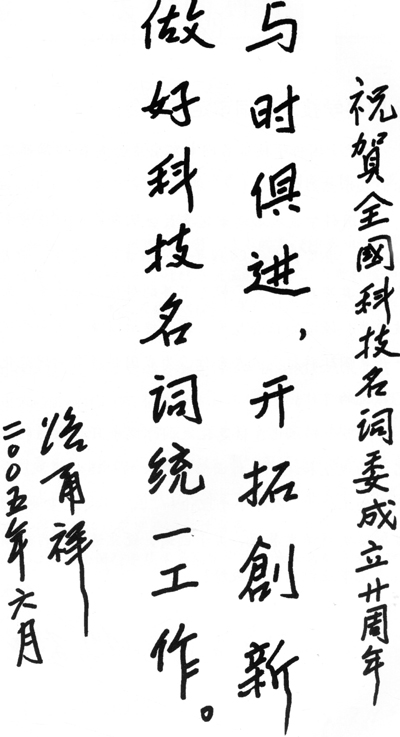 祝賀全國科技名词委成立廿周年
与时俱进，开拓創新
做好科技名词统一工作。
路甬祥
二〇〇五年六月